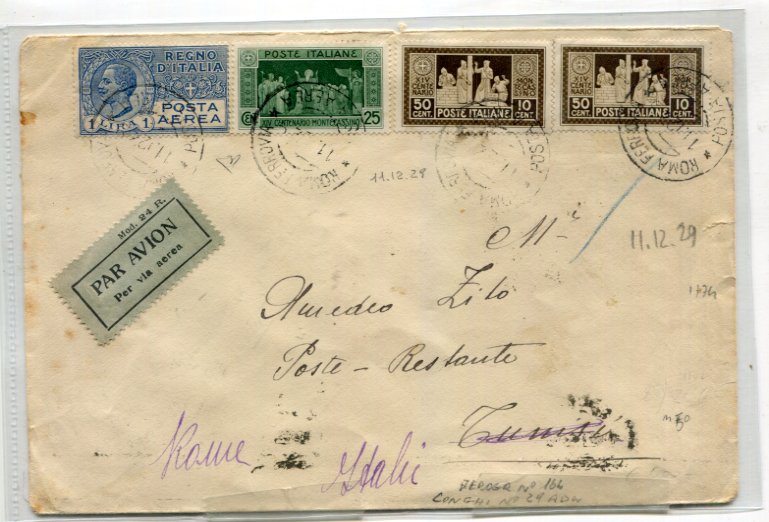 REGNO D'ITALIA
POSTA AEREA
1 LIRA 1
POSTE ITALIANE
25
XIV CENTENARIO MONTECASSINO
XIV CENTENARIO
MONTECASSINO
50 CENT.
10 CENT.
POSTE ITALIANE
XIV CENTENARIO
MONTECASSINO
50 CENT.
10 CENT.
POSTE ITALIANE
ROMA FERROVIA
POSTA AEREA
11.12.29
Mod. 24 R.
PAR AVION
Per via aerea
11.12.29
Amedeo Zito
Poste-Restante
Tunisi
Rome Italie
LONGHI Nº 29